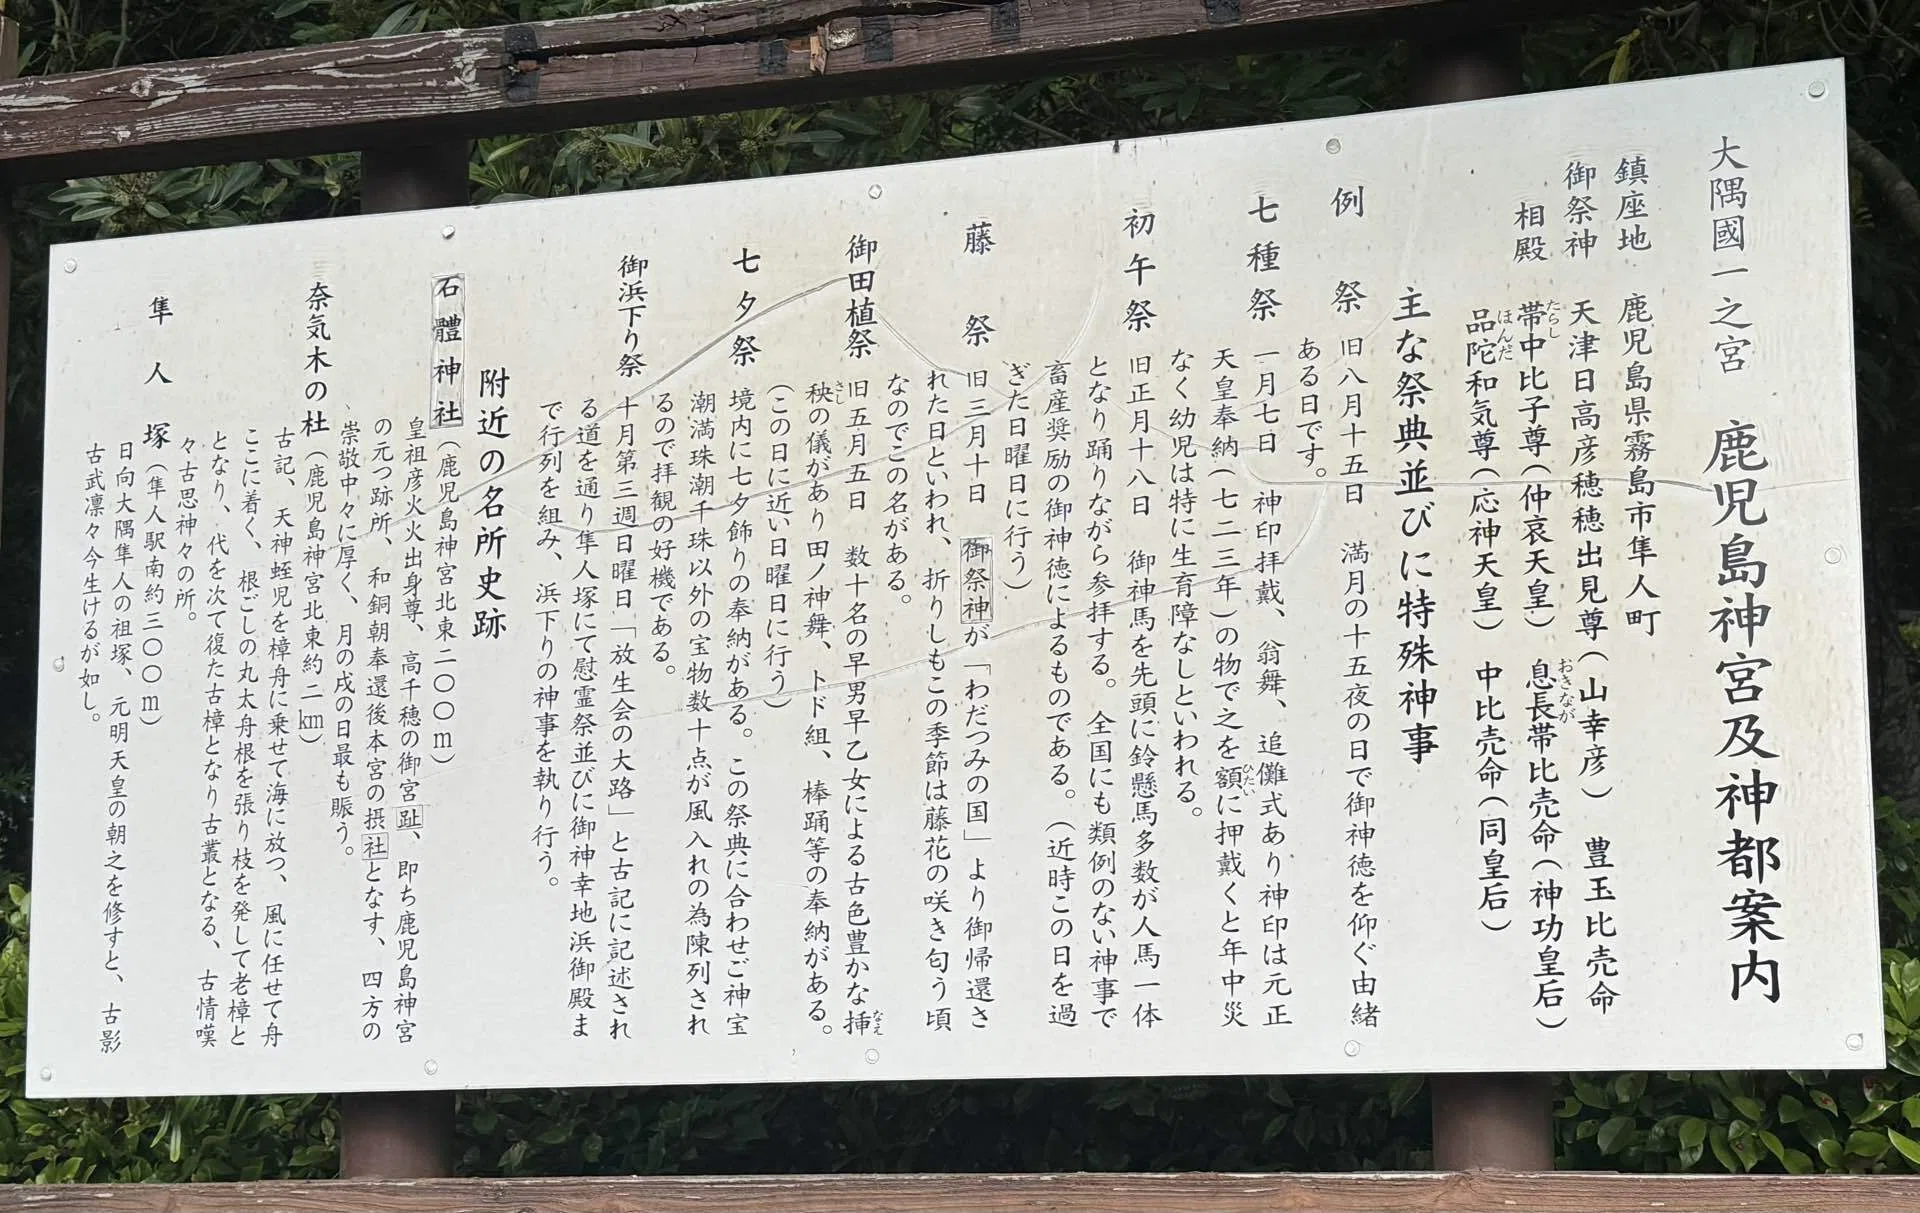 大隅國一之宮　鹿児島神宮及神都案内
鎮座地　鹿児島県霧島市隼人町
御祭神　天津日高彦穂穂出見尊（山幸彦）　豊玉比売命
相殿　帯中比子尊（仲哀天皇）　息長帯比売命（神功皇后）
たらし
おきなが
品陀和気尊（応神天皇）　中比売命（同皇后）
ほんだ
主な祭典並びに特殊神事
例祭　旧八月十五日　満月の十五夜の日で御神徳を仰ぐ由緒
ある日です。
七種祭　一月七日　神印拝戴、翁舞、追儺式あり神印は元正
天皇奉納（七二三年）の物で之を額に押戴くと年中災
ひたい
なく幼児は特に生育障なしといわれる。
初午祭　旧正月十八日　御神馬を先頭に鈴懸馬多数が人馬一体
となり踊りながら参拝する。全国にも類例のない神事で
畜産奨励の御神徳によるものである。（近時この日を過
ぎた日曜日に行う）
藤祭　旧三月十日　御祭神が「わだつみの国」より御帰還さ
れた日といわれ、折りしもこの季節は藤花の咲き匂う頃
なのでこの名がある。
御田植祭　旧五月五日　数十名の早男早乙女による古色豊かな挿
なえ
秧の儀があり田ノ神舞、トド組、棒踊等の奉納がある。
さし
（この日に近い日曜日に行う）
七夕祭　境内に七夕飾りの奉納がある。この祭典に合わせご神宝
潮満珠潮千珠以外の宝物数十点が風入れの為陳列され
るので拝観の好機である。
御浜下り祭　十月第三週日曜日「放生会の大路」と古記に記述され
る道を通り隼人塚にて慰霊祭並びに御神幸地浜御殿ま
で行列を組み、浜下りの神事を執り行う。
附近の名所史跡
石體神社（鹿児島神宮北東二〇〇ｍ）
皇祖彦火火出身尊、高千穂の御宮趾、即ち鹿児島神宮
の元つ跡所、和銅朝奉還後本宮の摂社となす、四方の
崇敬中々に厚く、月の戌の日最も賑う。
奈気木の杜（鹿児島神宮北東約二㎞）
古記、天神蛭児を樟舟に乗せて海に放つ、風に任せて舟
ここに着く、根ごしの丸太舟根を張り枝を発して老樟と
となり、代を次て復た古樟となり古叢となる、古情嘆
々古思神々の所。
隼人塚（隼人駅南約三〇〇ｍ）
日向大隅隼人の祖塚、元明天皇の朝之を修すと、古影
古武凛々今生けるが如し。